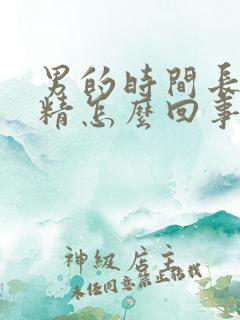 男的時間長
精怎麼回事
神級店主
未经同意禁止转载